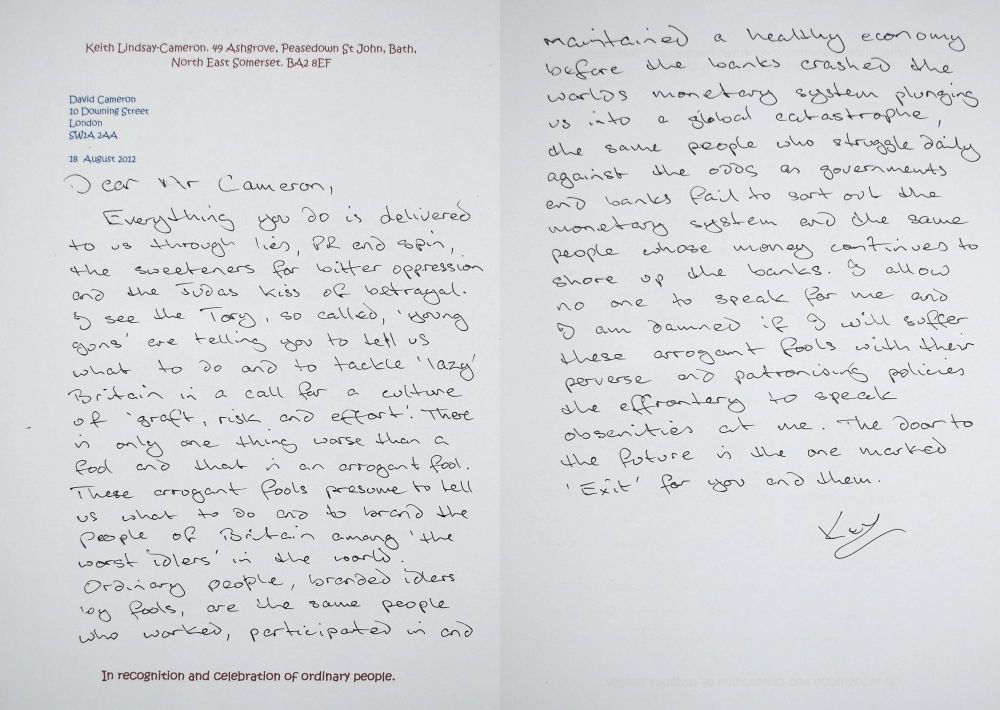 Keith Lindsay-Cameron. 49 Ashgrove, Peasedown St John, Bath,
North East Somerset. BA2 8EF
David Cameron
10 Downing Street
London
SW1A 2AA
18 August 2012
Dear Mr Cameron,
Everything you do is delivered
to us through lies, PR and spin,
the sweeteners for bitter oppression
and the Judas kiss of betrayal.
I see the Tory, so called, 'young
guns' are telling you to tell us
what to do and to tackle 'lazy'
Britain in a call for a culture
of 'graft, risk and effort'. There
is only one thing worse than a
fool and that is an arrogant fool.
These arrogant fools presume to tell
us what to do and to brand the
people of Britain among 'the
worst idlers' in the world.
Ordinary people, branded idlers
by fools, are the same people
who worked, participated in and
In recognition and celebration of ordinary people.
maintained a healthy economy
before the banks crashed the
worlds monetary system plunging
us into a global catastrophe,
the same people who struggle daily
against the odds as governments
and banks fail to sort out the
monetary system and the same
people whose money continues to
shore up the banks. I allow
no one to speak for me and
I am damned if I will suffer
these arrogant fools with their
perverse and patronising policies
the effrontery to speak
obsenities at me. The door to
the future is the one marked
'Exit' for you and them.